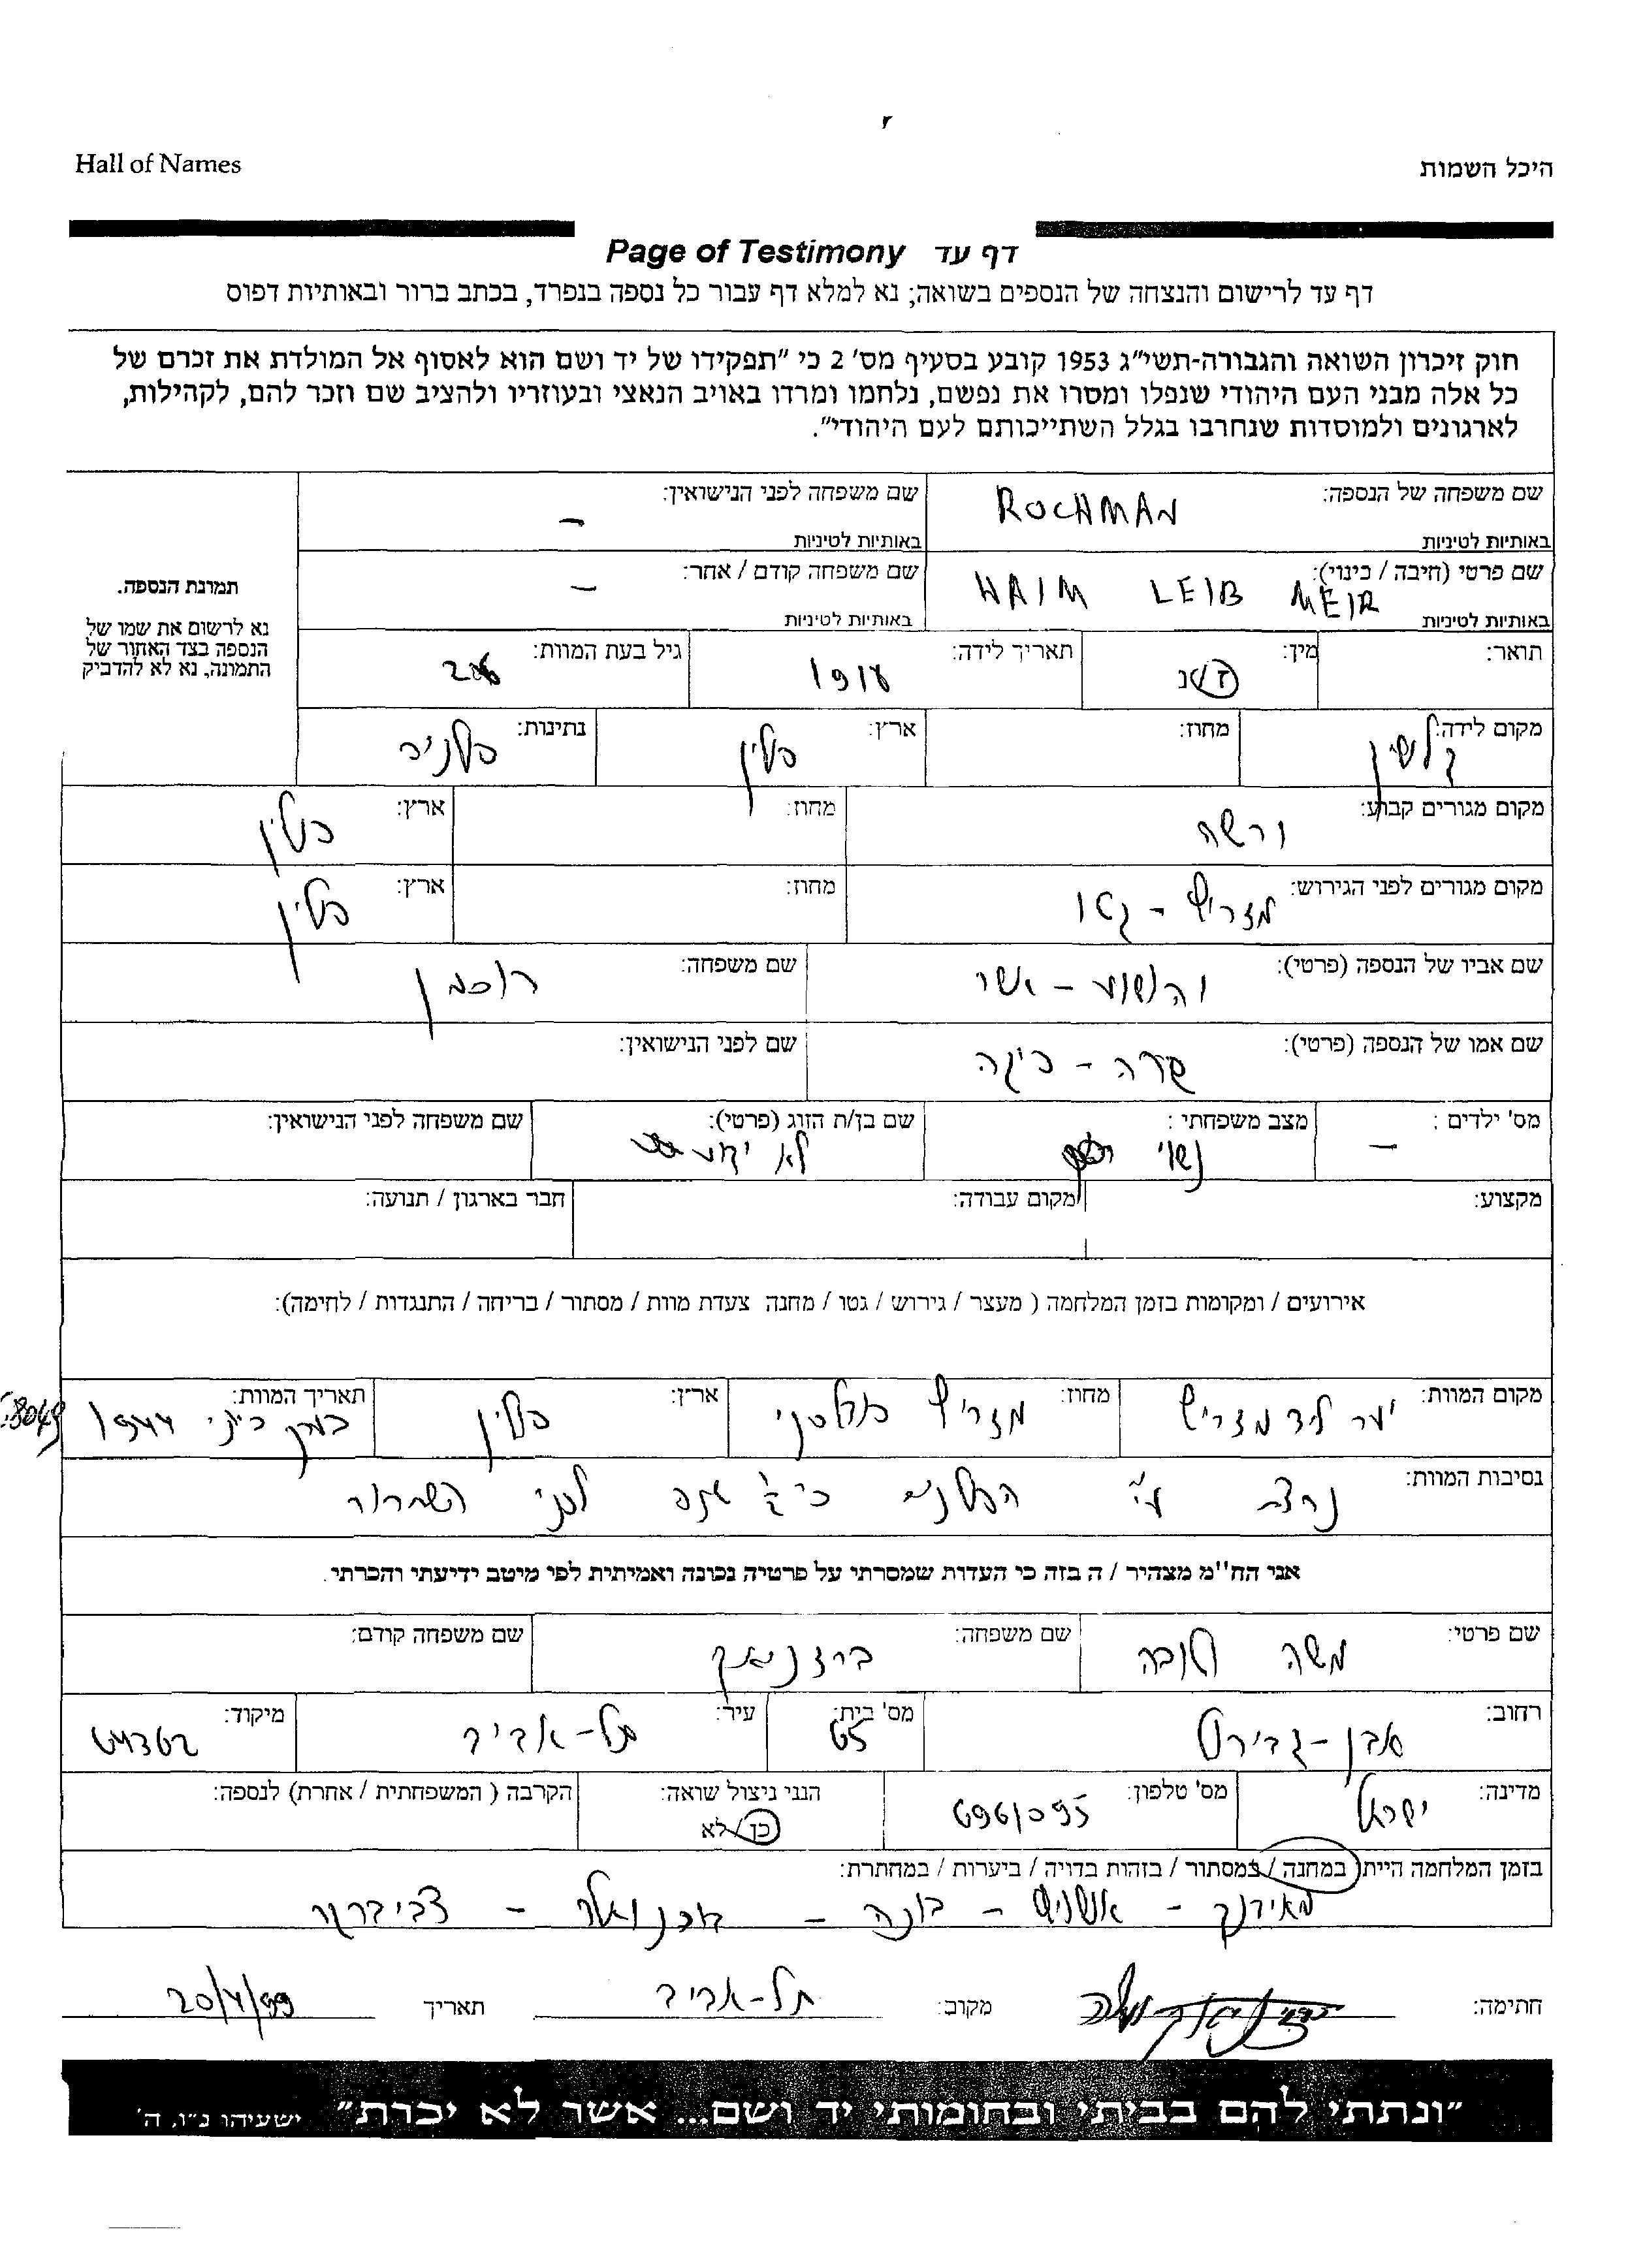 Hall of Names
היכל השמות
דף עד Page of Testimony
דף עד לרישום והנצחה של הנספים בשואה; נא למלא דף עבור כל נספה בנפרד, בכתב ברור ובאותיות דפוס
חוק זיכרון השואה והגבורה-תשי"ג 1953 קובע בסעיף מס' 2 כי "תפקידו של יד ושם הוא לאסוף אל המולדת את זכרם של
כל אלה מבני העם היהודי שנפלו ומסרו את נפשם, נלחמו ומרדו באויב הנאצי ובעוזריו ולהציב שם וזכר להם, לקהילות,
לארגונים ולמוסדות שנחרבו בגלל השתייכותם לעם היהודי".
שם משפחה של הנספה: ROCHMAN
באותיות לטיניות
שם משפחה לפני הנישואין: –
באותיות לטיניות
שם פרטי (חיבה / כינוי): HAIM LEIB MEIR
באותיות לטיניות
שם משפחה קודם / אחר: –
באותיות לטיניות
תמונת הנספה.
נא לרשום את שמו של
הנספה בצד האחור של
התמונה, נא לא להדביק
תואר:
מין: ז/נ
תאריך לידה: 1918
גיל בעת המוות: 26
מקום לידה:
מחוז:
ארץ: פולין
נתינות: פולניה
מקום מגורים קבוע: ורשה
מחוז:
ארץ: פולין
מקום מגורים לפני הגירוש: מזריץ - גטו
מחוז:
ארץ: פולין
שם אביו של הנספה (פרטי): יהושוע - אשר
שם משפחה: רוכמן
שם אמו של הנספה (פרטי): שרה -
שם לפני הנישואין:
מס' ילדים: –
מצב משפחתי: נשוי
שם בן/ת הזוג (פרטי): לא ידוע
שם משפחה לפני הנישואין:
מקצוע:
מקום עבודה:
חבר בארגון / תנועה:
אירועים / ומקומות בזמן המלחמה ( מעצר / גירוש / גטו / מחנה צעדת מוות / מסתור / בריחה / התנגדות / לחימה):
מקום המוות: יער ליד מזריץ
מחוז: מזריץ פודלסקי
ארץ: פולין
תאריך המוות: 1944
נסיבות המוות: נרצח ע"י הפולנים לפני השחרור
אני הח"מ מצהיר / ה בזה כי העדות שמסרתי על פרטיה נכונה ואמיתית לפי מיטב ידיעתי והכרתי.
שם פרטי: משה טוביה
שם משפחה:
שם משפחה קודם:
רחוב: אבן-גבירול
מס' בית: 65
עיר: תל-אביב
מיקוד: 64362
מדינה: ישראל
מס' טלפון: 6961095
הנני ניצול שואה: כן/לא
הקרבה ( המשפחתית / אחרת) לנספה:
בזמן המלחמה היית במחנה / במסתור / בזהות בדויה / ביערות / במחתרת:
מאידנק - אושויץ - בונה - בוכנואלד -
חתימה:
מקום: תל-אביב
תאריך 20/4/99
"ונתתי להם בביתי ובחומותי יד ושם... אשר לא יכרת" ישעיהו נ"ו, ה'